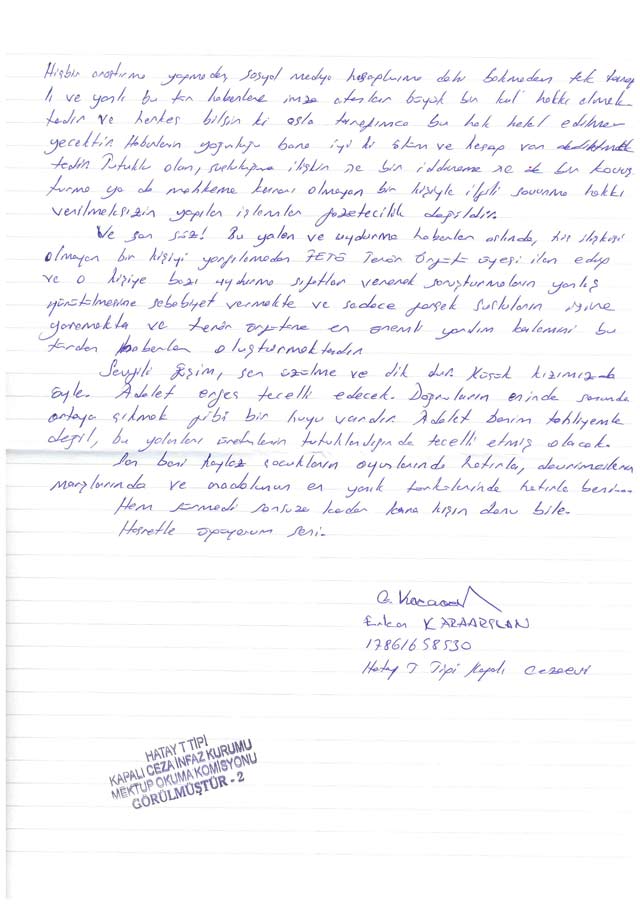 Hiçbir araştırma yapmadan, sosyal medya hesaplarıma dahi bakmadan tek taraf
lı ve yanlı bu tür haberlere imza atanların büyük bir kul hakkı
tadır ve herkes bilsin ki asla tarafımca bu hak helal edilme
yecektir. Haberlerin yoğunluğu bana iyi ki ve hesap var
tedir. Tutuklu olan, suçluluğuna ilişkin ne bir iddianame ne de bir kovuş
turma ya da mahkeme kararı olmayan bir kişiyle ilgili savunma hakkı
verilmeksizin yapılan işlemler gazetecilik değildir.
Ve son söz! Bu yalan ve uydurma haberler aslında, hiç ilişkisi
olmayan bir kişiyi yargılamadan FETÖ Terör Örgütü üyesi ilan edip
ve o kişiye bazı uydurma sıfatlar vererek soruşturmaların yanlış
yürütülmesine sebebiyet vermekte ve sadece gerçek suçluların işine
yaramakta ve terör örgütüne en önemli yardım kalemini bu
türden haberler oluşturmaktadır.
Sevgili eşim, sen üzülme ve dik dur. Küçük kızımız da
öyle. Adalet ergeç tecelli edecek. Doğruların eninde sonunda
ortaya çıkmak gibi bir huyu vardır. Adalet benim tahliyemle
değil, bu yalanları üretenlerin tutuklandığında tecelli etmiş olacak.
Sen beni haylaz çocukların oyunlarında hatırla, devrimcilerin
marşlarında ve anadolunun en yanık türkülerinde hatırla beni...
Hem sürmedi sonsuza kadar kara kışın donu bile.
Hasretle öpüyorum seni.
Ercan KARAARSLAN
17861658530
Hatay T Tipi Kapalı Cezaevi
HATAY T TİPİ
KAPALI CEZA İNFAZ KURUMU
MEKTUP OKUMA KOMİSYONU
GÖRÜLMÜŞTÜR - 2